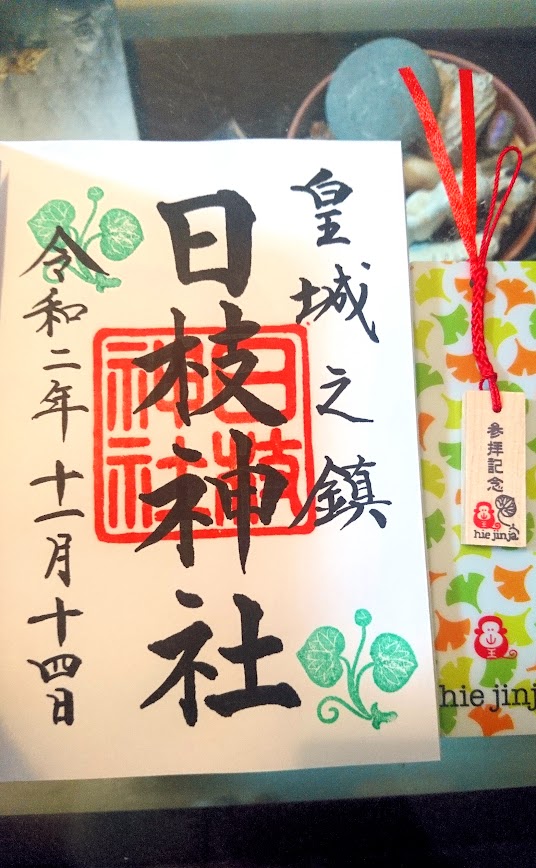 皇城之鎮
日枝神社
日枝神社
令和二年十一月十四日
参拝記念
hie jinja
hie jinj